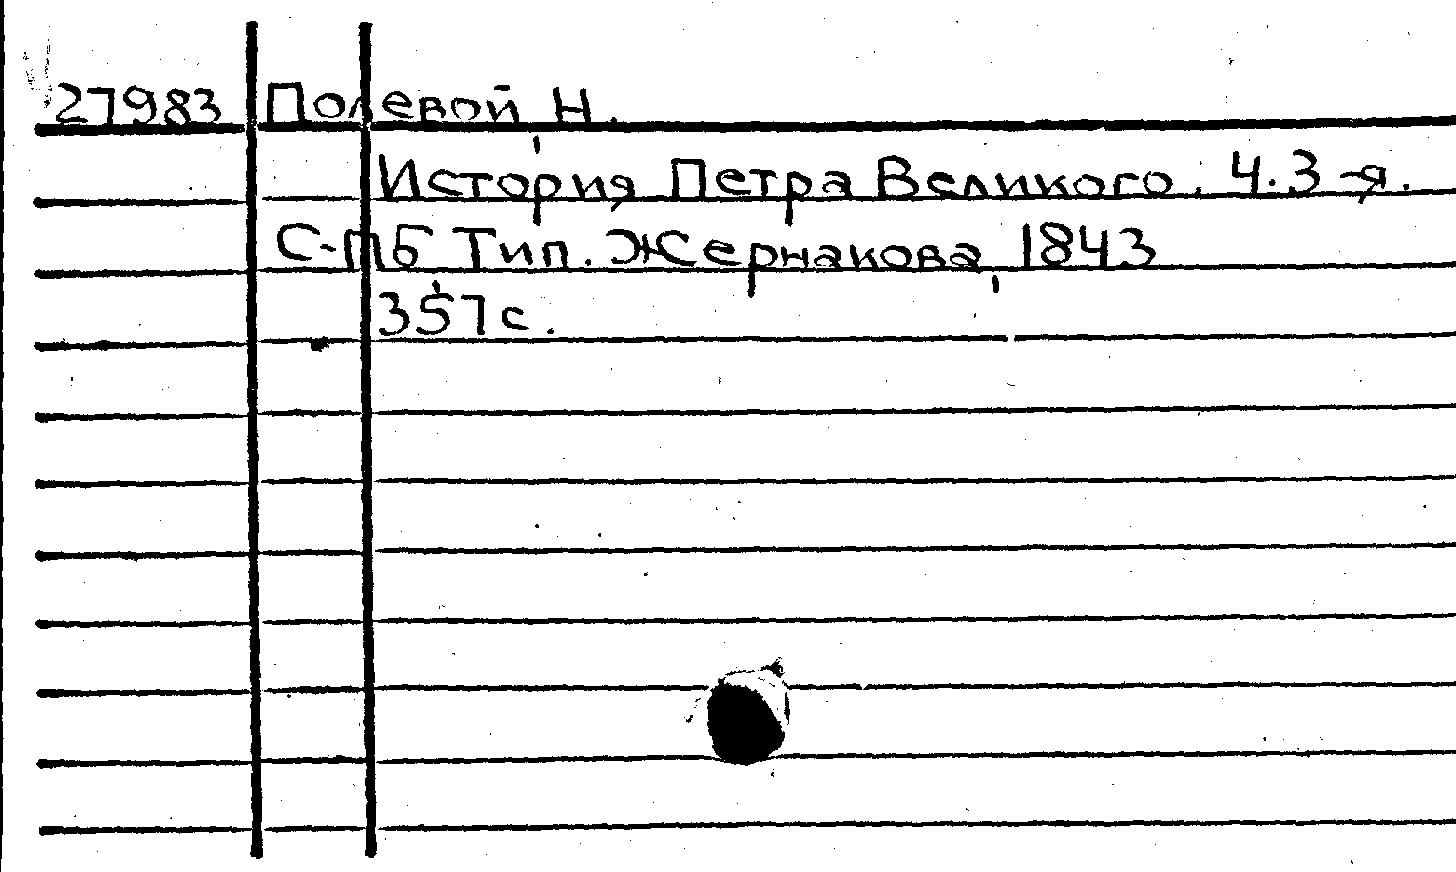 27983 Полевой, Н.
История Петра Великого. Ч.3-я.
С-ПБ Тип. Жернакова, 1843
357 с.